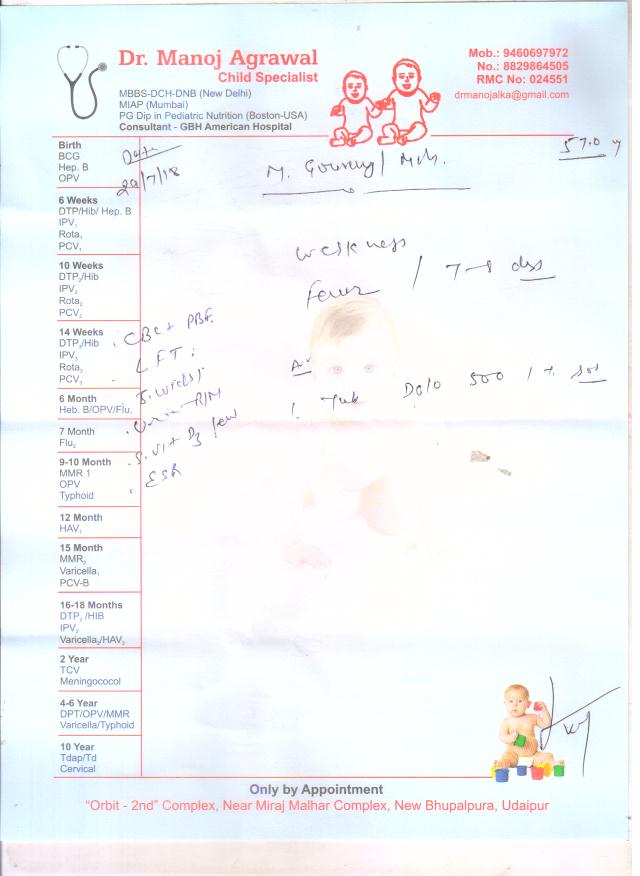 Dr. Manoj Agrawal
Child Specialist
MBBS-DCH-DNB (New Delhi)
MIAP (Mumbai)
PG Dip in Pediatric Nutrition (Boston-USA)
Consultant - GBH American Hospital
Mob.: 9460697972
No.: 8829864505
RMC No: 024551
drmanojalka@gmail.com
Birth
BCG
Hep. B
OPV
Date
29/7/18
M.
57.0
6 Weeks
DTP/Hib/ Hep. B
IPV₁
Rota₁
PCV₁
weakness
Fever / 7-8 days
10 Weeks
DTP₂/Hib
IPV₂
Rota₂
PCV₂
14 Weeks
DTP₃/Hib
IPV₃
Rota₃
PCV₃
CBC + PBF
LFT
S. widal
Urine R/M
S. Vit D3 level
ESR
Adv
1. Tab Dolo 500 1 t. sos
6 Month
Heb. B/OPV/Flu₁
7 Month
Flu₂
9-10 Month
MMR 1
OPV
Typhoid
12 Month
HAV₁
15 Month
MMR₂
Varicella₁
PCV-B
16-18 Months
DTP₁ /HIB
IPV₂
Varicella₂/HAV₂
2 Year
TCV
Meningococol
4-6 Year
DPT/OPV/MMR
Varicella/Typhoid
10 Year
Tdap/Td
Cervical
Only by Appointment
"Orbit - 2nd" Complex, Near Miraj Malhar Complex, New Bhupalpura, Udaipur